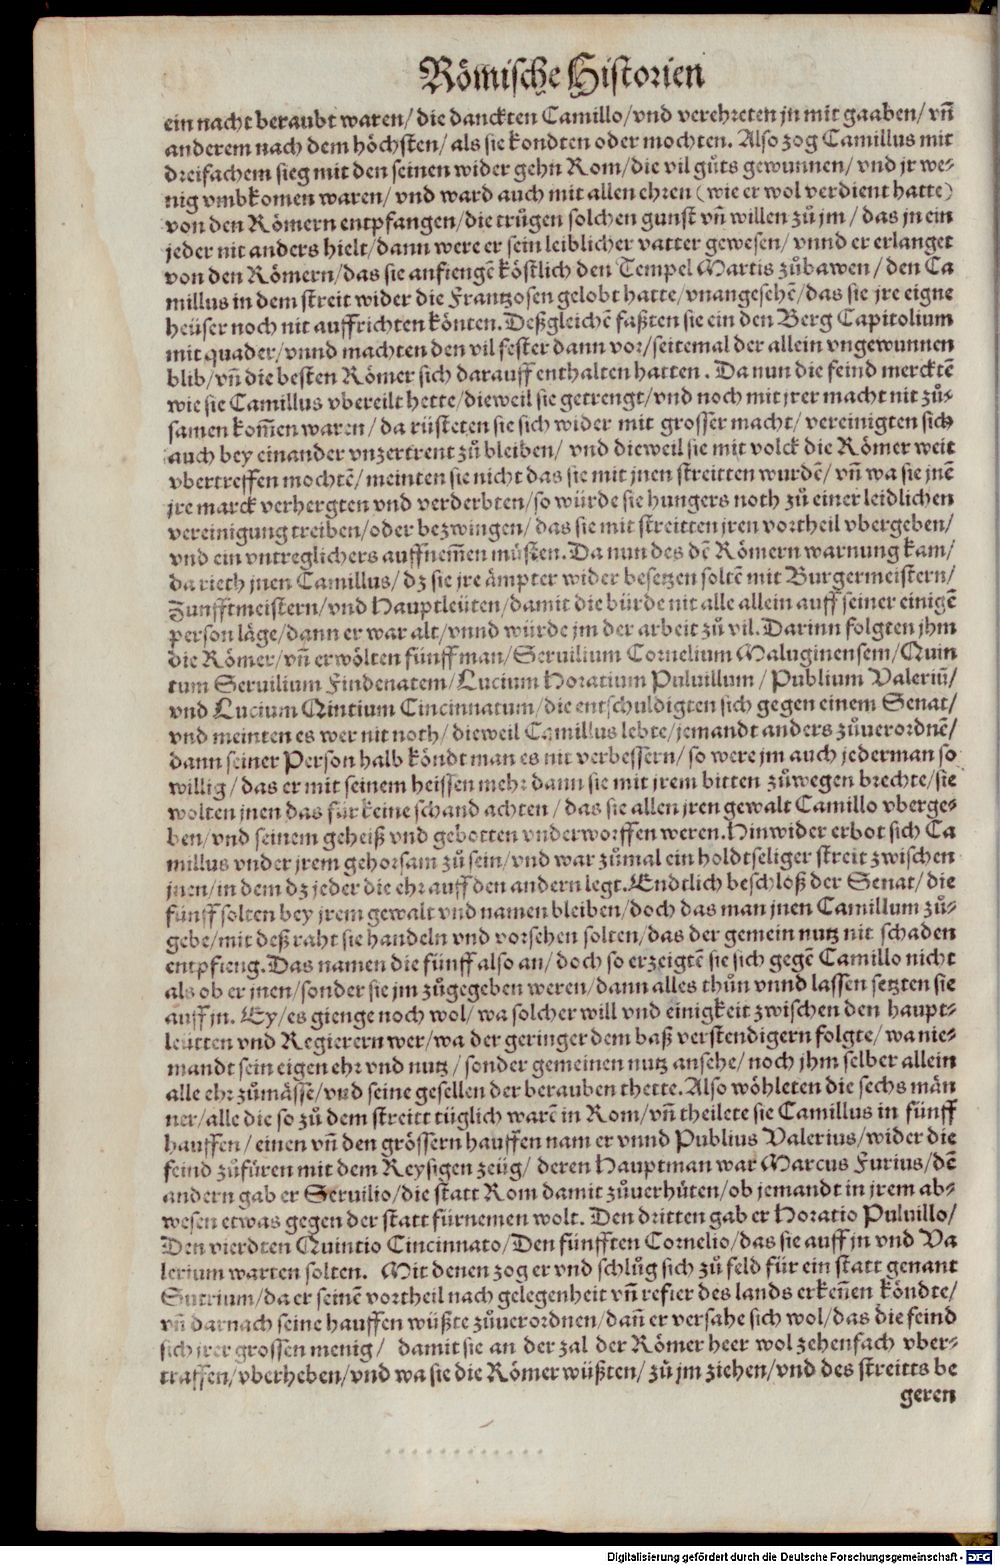 Römische Historien
ein nacht beraubt waren/ die danckten Camillo/ vnd verehreten jn mit gaaben/ vñ
anderem nach dem höchsten/ als sie kondten oder mochten. Also zog Camillus mit
dreifachem sieg mit den seinen wider gehn Rom/ die vil gůts gewunnen/ vnd jr we⸗
nig vmbkomen waren/ vnd ward auch mit allen ehren (wie er wol verdient hatte)
von den Römern entpfangen/ die trůgen solchen gunst vñ willen zů jm/ das jn ein
jeder nit anders hielt/ dann were er sein leiblicher vatter gewesen/ vnnd er erlanget
von den Römern/ das sie anfiengẽ köstlich den Tempel Martis zůbawen/ den Ca
millus in dem streit wider die Frantzosen gelobt hatte/ vnangesehẽ/ das sie jre eigne
heüser noch nit auffrichten könten. Deßgleichẽ faßten sie ein den Berg Capitolium
mit quader/ vnnd machten den vil fester dann vor/ seitemal der allein vngewunnen
blib/ vñ die besten Römer sich darauff enthalten hatten. Da nun die feind mercktẽ
wie sie Camillus vbereilt hette/ dieweil sie getrengt/ vnd noch mit jrer macht nit zů⸗
samen kom̃en waren/ da rüsteten sie sich wider mit grosser macht/ vereinigten sich
auch bey einander vnzertrent zů bleiben/ vnd dieweil sie mit volck die Römer weit
vbertreffen mochtẽ/ meinten sie nicht das sie mit jnen streitten wurdẽ/ vñ wa sie jnẽ
jre marck verhergten vnd verderbten/ so würde sie hungers noth zů einer leidlichen
vereinigung treiben/ oder bezwingen/ das sie mit streitten jren vortheil vbergeben/
vnd ein vntreglichers auffnem̃en müsten. Da nun des dẽ Römern warnung kam/
da rieth jnen Camillus/ dz sie jre ämpter wider besetzen soltẽ mit Burgermeistern/
Zunfftmeistern/ vnd Hauptleüten/ damit die bürde nit alle allein auff seiner einigẽ
person läge/ dann er war alt/ vnnd würde jm der arbeit zů vil. Darinn folgten jhm
die Römer/ vñ erwölten fünff man/ Seruilium Cornelium Maluginensem/ Quin
tum Seruilium Findenatem/ Lucium Horatium Puluillum/ Publium Valeriũ/
vnd Lucium Qintium Cincinnatum/ die entschuldigten sich gegen einem Senat/
vnd meinten es wer nit noth/ dieweil Camillus lebte/ jemandt anders zůuerordnẽ/
dann seiner Person halb köndt man es nit verbessern/ so were jm auch jederman so
willig/ das er mit seinem heissen mehr dann sie mit jrem bitten zůwegen brechte/ sie
wolten jnen das für keine schand achten/ das sie allen jren gewalt Camillo vberge⸗
ben/ vnd seinem geheiß vnd gebotten vnderworffen weren. Hinwider erbot sich Ca
millus vnder jrem gehorsam zů sein/ vnd war zůmal ein holdtseliger streit zwischen
jnen/ in dem dz jeder die ehr auff den andern legt. Endtlich beschloß der Senat/ die
fünff solten bey jrem gewalt vnd namen bleiben/ doch das man jnen Camillum zů⸗
gebe/ mit deß raht sie handeln vnd vorsehen solten/ das der gemein nutz nit schaden
entpfieng. Das namen die fünff also an/ doch so erzeigtẽ sie sich gegẽ Camillo nicht
als ob er jnen/ sonder sie jm zůgegeben weren/ dann alles thůn vnnd lassen setzten sie
auff jn. Ey/ es gienge noch wol/ wa solcher will vnd einigkeit zwischen den haupt⸗
leütten vnd Regierern wer/ wa der geringer dem baß verstendigern folgte/ wa nie⸗
mandt sein eigen ehr vnd nutz/ sonder gemeinen nutz ansehe/ noch jhm selber allein
alle ehr zůmässe/ vnd seine gesellen der berauben thette. Also wöhleten die sechs män
ner/ alle die so zů dem streitt tüglich warẽ in Rom/ vñ theilete sie Camillus in fünff
hauffen/ einen vñ den grössern hauffen nam er vnnd Publius Valerius/ wider die
feind zůfüren mit dem Reysigen zeüg/ deren Hauptman war Marcus Furius/ dẽ
andern gab er Seruilio/ die statt Rom damit zůuerhüten/ ob jemandt in jrem ab⸗
wesen etwas gegen der statt fürnemen wolt. Den dritten gab er Horatio Puluillo/
Den vierdten Quintio Cincinnato/ Den fünfften Cornelio/ das sie auff jn vnd Va
lerium warten solten. Mit denen zog er vnd schlůg sich zů feld für ein statt genant
Sutrium/ da er seinẽ vortheil nach gelegenheit vñ refier des lands erkeñen köndte/
vñ darnach seine hauffen wüßte zůuerordnen/ dañ er versahe sich wol/ das die feind
sich jrer grossen menig/ damit sie an der zal der Römer heer wol zehenfach vber⸗
traffen/ vberheben/ vnd wa sie die Römer wüßten/ zů jm ziehen/ vnd des streitts be
geren
Digitalisierung gefördert durch die Deutsche Forschungsgemeinschaft - DFG